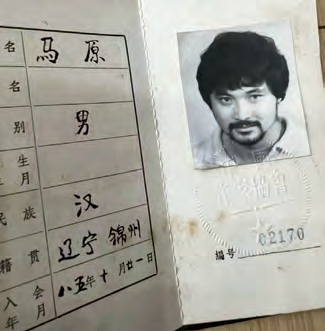 名 马原
名
别 男
生
月
民族 汉
籍贯 辽宁 锦州
入会
年月 八五年十月廿一日
编号 02170